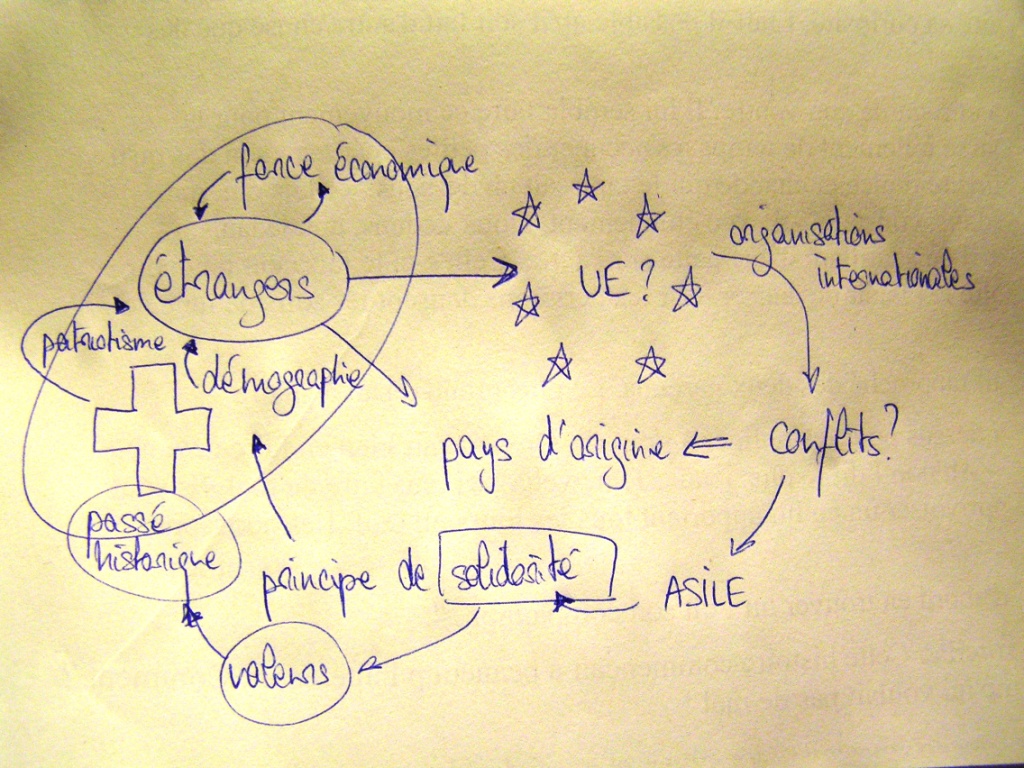 force économique
étrangers
UE ?
organisations
internationales
patriotisme
démographie
pays d'origine
conflits ?
passé
historique
principe de solidarité
ASILE
valeurs